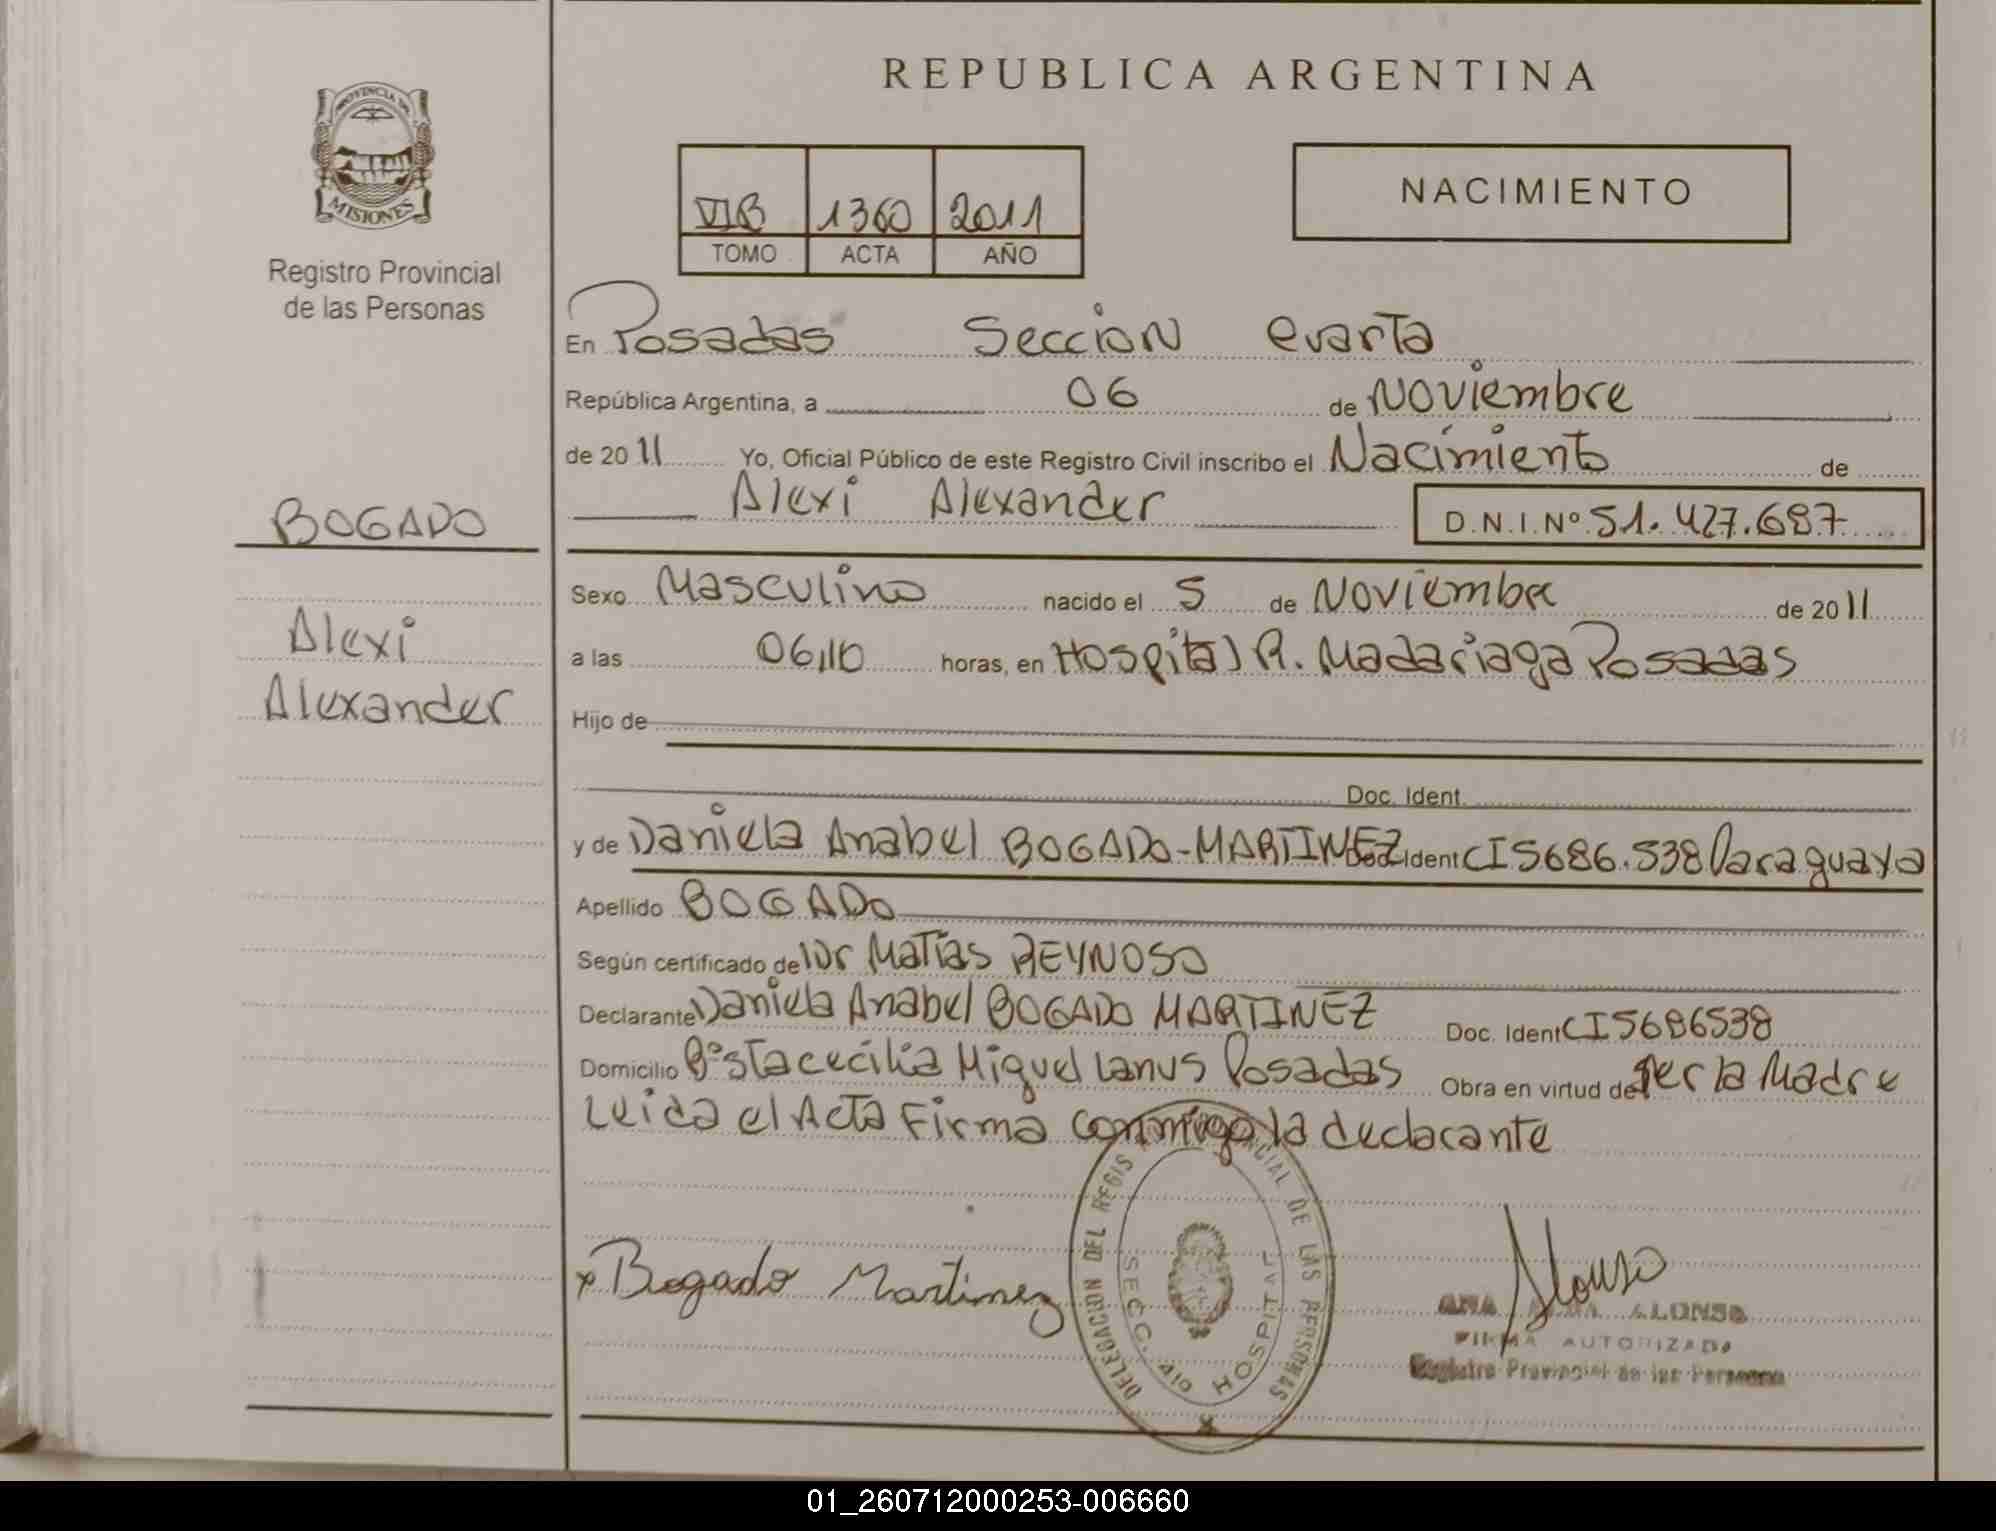 REPUBLICA ARGENTINA
PROVINCIA DE
MISIONES
Registro Provincial
de las Personas
VIB 1360 2011
TOMO ACTA AÑO
NACIMIENTO
En Posadas Seccion cuarta
República Argentina, a 06 de Noviembre
de 2011 Yo, Oficial Público de este Registro Civil inscribo el Nacimiento de
Alexi Alexander D.N.I.Nº 51.427.687
BOGADO
Alexi
Alexander
Sexo Masculino nacido el 5 de Noviembre de 2011
a las 06,10 horas, en Hospital R. Madariaga Posadas
Hijo de
Doc. Ident.
y de Daniela Anabel BOGADO-MARTINEZ Doc. Ident CI 5686.538 Paraguaya
Apellido BOGADO
Según certificado de Dr Matías REYNOSO
Declarante Daniela Anabel BOGADO MARTINEZ Doc. Ident CI 5686538
Domicilio Bº Sta cecilia Miguel Lanus Posadas Obra en virtud de ser la Madre
Leida el Acta Firma conmigo la declarante
x Bogado Martinez
DELEGACION DEL REGISTRO PROVINCIAL DE LAS PERSONAS
SECC. 4to HOSPITAL
Alonso
ANA ALONSO
FIRMA AUTORIZADA
Registro Provincial de las Personas
01_260712000253-006660